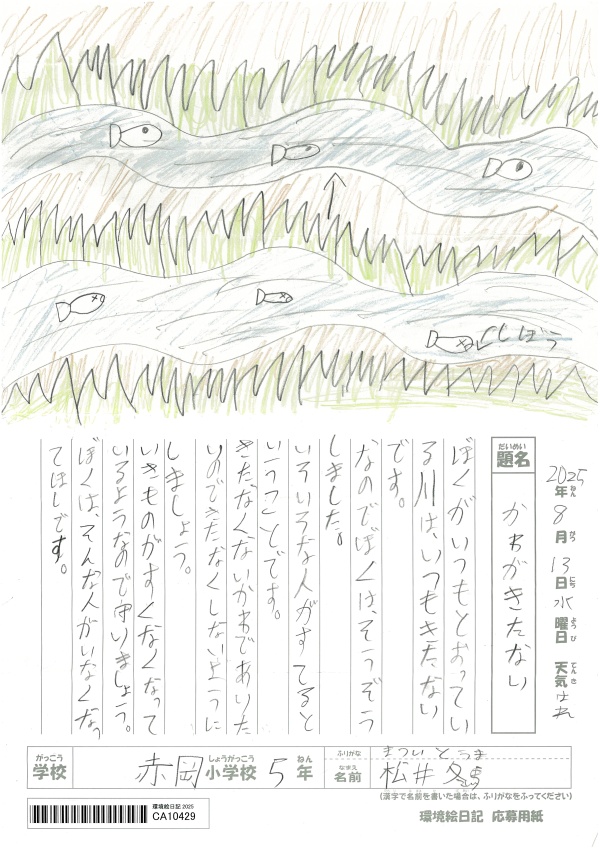 しぼう
2025年ねん8月がつ13日にち水曜日ようび 天気てんきはれ
題名だいめい かわがきたない
ぼくがいつもとおってい
る川は、いつもきたない
です。
なのでぼくは、そうぞう
しました。
いろいろな人がすてると
いうことです。
きたなくないかわであいた
いのできたなくしないように
しましょう。
いきものがすくなくなって
いるようなので守りましょう。
ぼくは、そんな人がいなくなっ
てほしです。
がっこう しょうがっこう ねん ふりがな まつい とうま
学校 赤岡小学校 5年 なまえ 名前 松井 冬
(漢字で名前を書いた場合は、ふりがなをふってください)
環境絵日記 2025
CA10429
環境絵日記 応募用紙